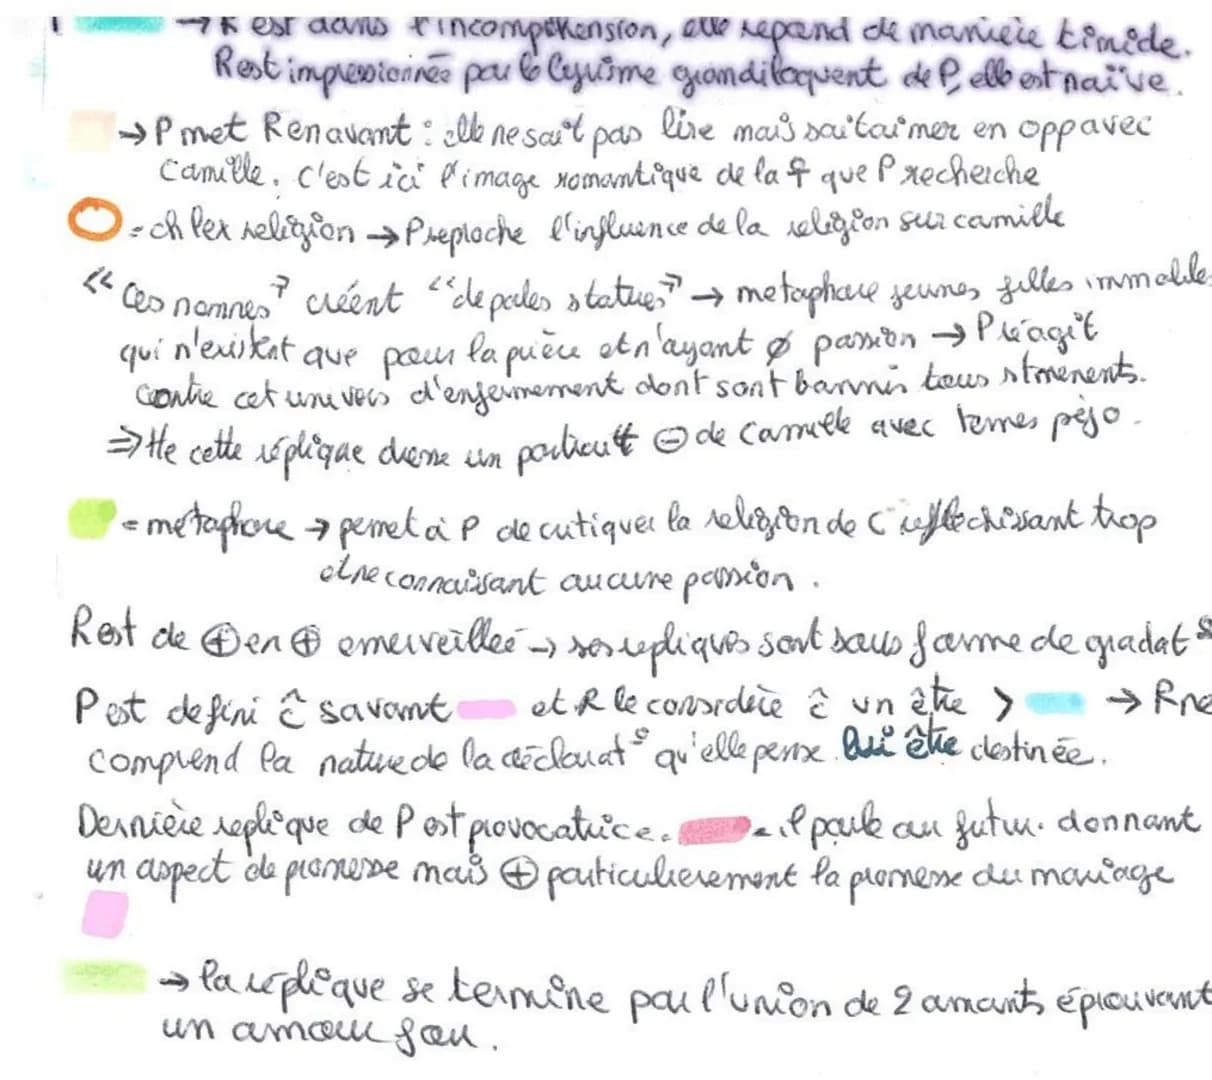 → R est dans l'incompéhension, elle repond de manière timide.
R est impressionnée par le lyrisme grandiloquent de P, elle est naïve.
→ P met R en avant : elle ne sait pas lire mais sait aimer en opp avec
Camille. C'est ici l'image romantique de la ♀ que P recherche
= ch lex religion → P reproche l'influence de la religion sur camille
"Ces nonnes" créent "de pales statues" → metaphore jeunes filles immobiles
qui n'existent que pour la prière et n'ayant ø passion → P réagit
contre cet univers d'enfermement dont sont bannis tous
⇒ Tte cette réplique dresse un portrait ⊖ de Camille avec termes péjo.
= métaphore → permet à P de critiquer la religion de C réflechissant trop
et ne connaissant aucune passion.
R est de ⊕ en ⊕ emerveillée → ses repliques sont sous forme de gradat°
P est defini ĉ savant et R le considère ĉ un être > → R ne
comprend la nature de la déclarat° qu'elle pense lui être destinée.
Dernière replique de P est provocatrice. = il parle au futur donnant
un aspect de promesse mais ⊕ particulierement la promesse du mariage
→ la réplique se termine par l'union de 2 amants éprouvant
un amour fou.